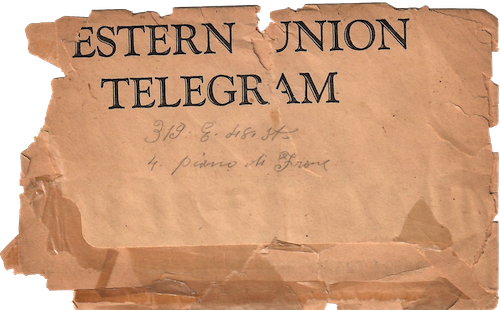 ESTERN UNION
TELEGRAM
319. E. 48 St
4. piano di